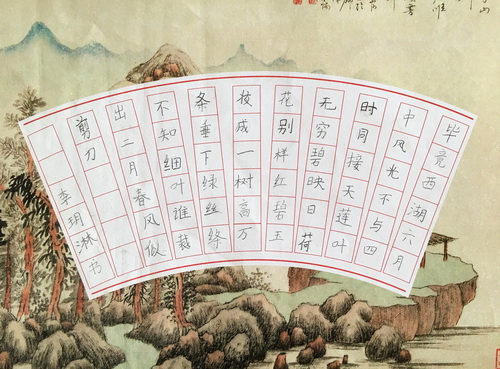 毕竟西湖六月
中风光不与四
时同接天莲叶
无穷碧映日荷
花别样红碧玉
妆成一树高万
条垂下绿丝绦
不知细叶谁裁
出二月春风似
剪刀
李玥淋书